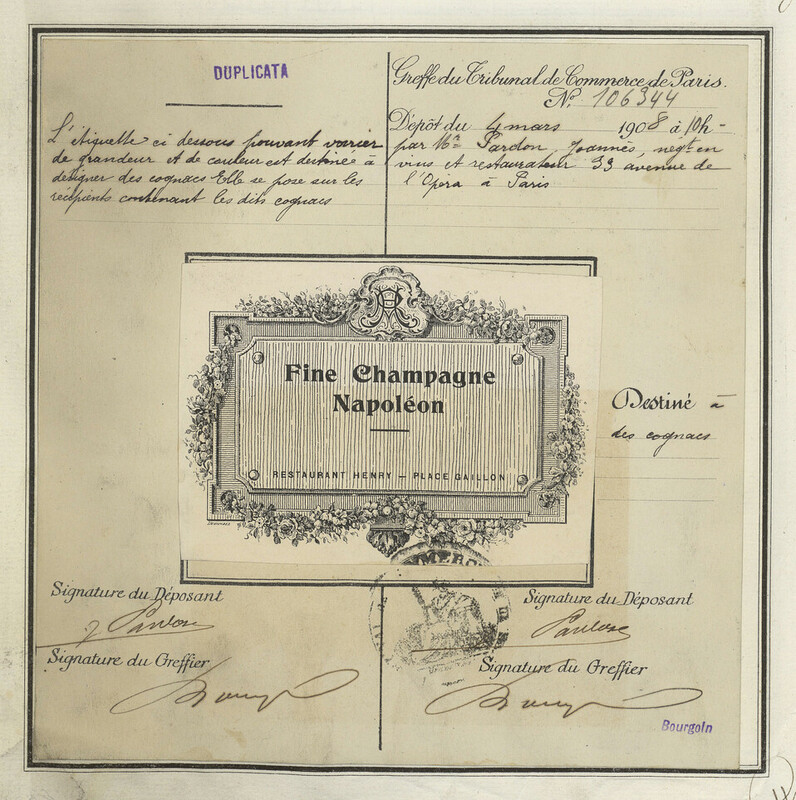 DUPLICATA
L'étiquette ci dessous pouvant varier
de grandeur et de couleur est destinée à
désigner des cognacs Elle se pose sur les
récipients contenant les dits cognacs
Greffe du Tribunal de Commerce de Paris.
N° 106344
Dépôt du 4 mars 1908 à 10h-
par Mr Pardon, Joannès, negt en
vins et restaurateur 39 avenue de
l'Opéra à Paris
Fine Champagne
Napoléon
RESTAURANT HENRY — PLACE GAILLON
Destiné à
des cognacs
Signature du Déposant
Signature du Greffier
Signature du Déposant
Signature du Greffier
Bourgoin